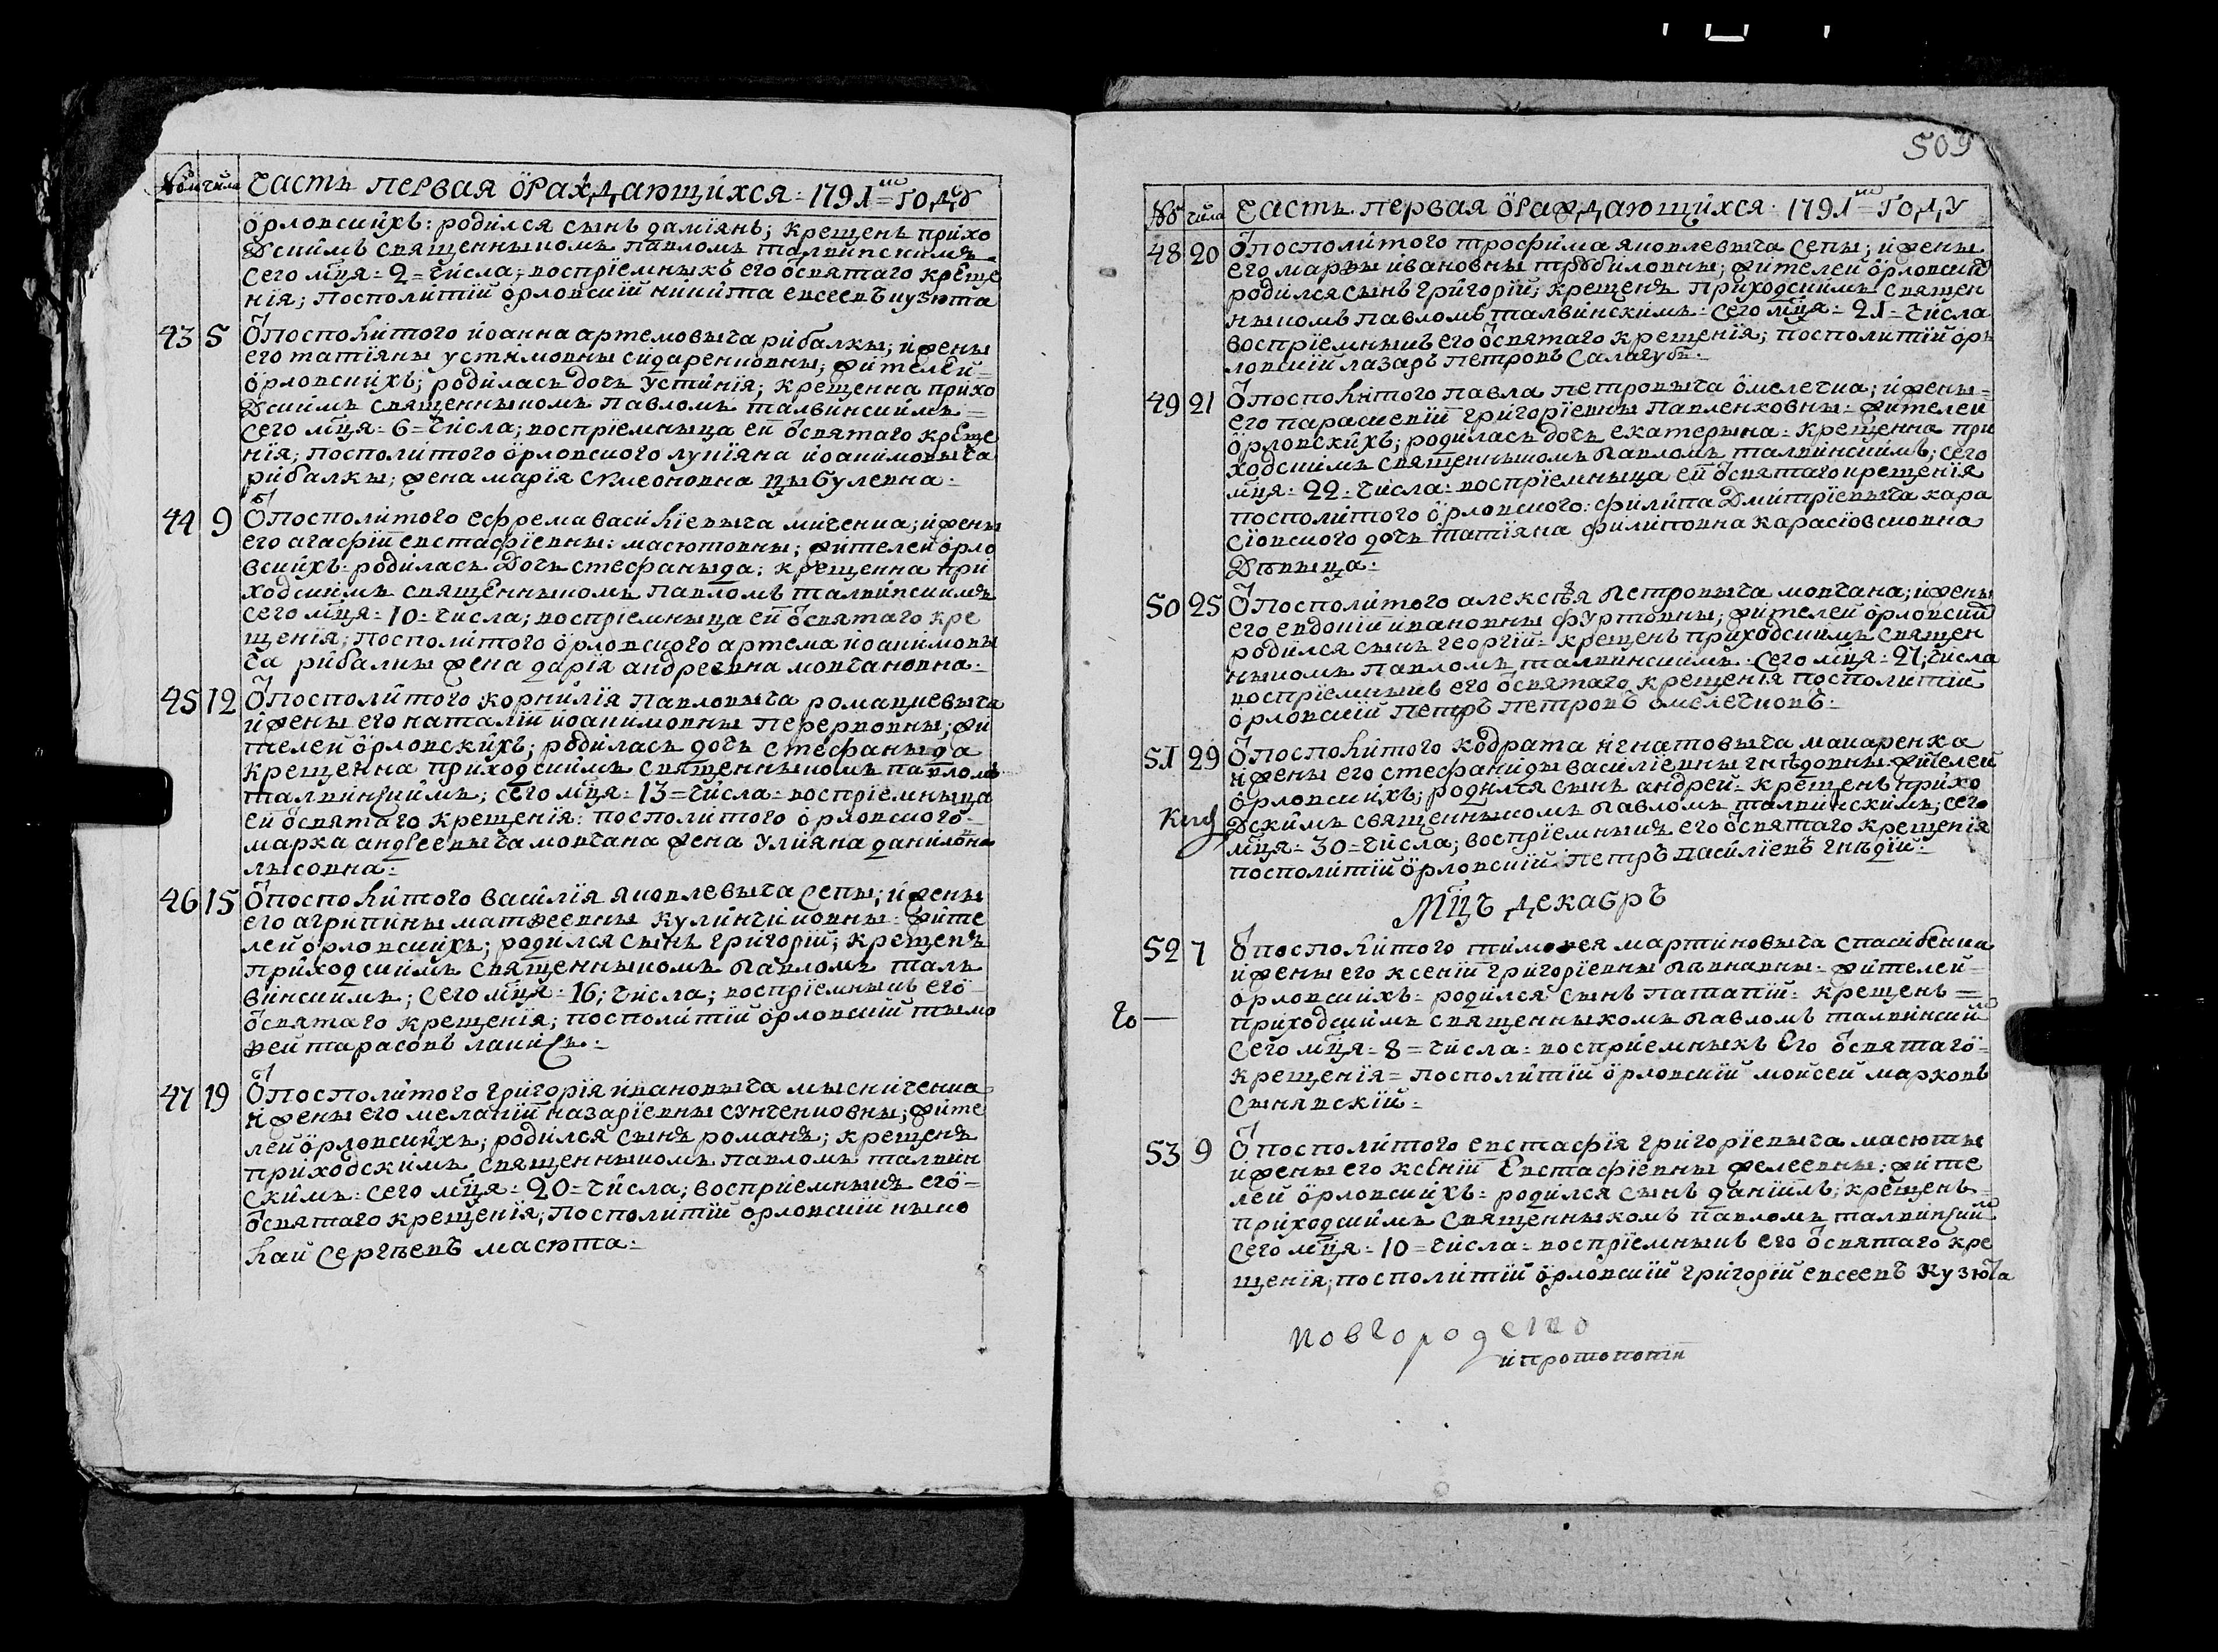 Часть первая ö раждающихся: 1791 = году
öрловскихъ: родился сынъ даміянъ; крещенъ прихо
дскимъ священныкомъ павломъ талвинскимъ
сего мця = 2 = числа; воспріемныкъ его ö святаго креще
нія; посполитїй öрловскїй никита евсеевъ кузюта
43 5 Ö посполитого иоанна артемовыча рибалкы; и жены
его татіяны устимовны сидаренковны; жителей
öрловскихъ; родилась дочь устинїя; крещенна прихо
дскимъ священныкомъ павломъ талвинскимъ =
сего мця = 6 = числа; воспріемныца ей ö святаго креще
нія; посполитого öрловского лукіяна иоакимовыча
рибалкы; жена марія симеоновна цыбулевна:
44 9 Ö посполитого ефрема василїевыча миченка; и жены
его агафїй евстафїевны: масютовны; жителей öрло
вскихъ: родилась дочь стефаныда; крещенна при
ходскимъ священныкомъ павломъ талвинскимъ
сего мця = 10 = числа; воспріемныца ей ö святаго кре
щенїя; посполитого öрловского артема иоакимовы
ча рибалкы жена дарія андреевна мовчановна:
45 12 Ö посполитого корнилїя павловыча романцевыча
и жены его наталїй иоакимовны перервовны; жи
телей öрловскихъ; родилась дочь стефаныда
крещенна приходскимъ священныкомъ павломъ
талвинскимъ; сего мця = 13 = числа = воспріемныца
ей ö святаго крещенїя: посполитого öрловского =
марка андреевыча мовчана жена улияна данилöвна
лысовна:
46 15 Ö посполитого василїя яковлевыча сепы; и жены
его агрипины матѳеевны куличиковны = жите
лей öрловскихъ; родился сынъ григорїй; крещенъ
приходскимъ священныкомъ павломъ тал
винскимъ; сего мця = 16; числа; воспріемныкъ его
ö святаго крещенїя; посполитїй öрловскїй тымо
ѳей тарасовъ
47 19 Ö посполитого григорїя ивановыча мысниченка
и жены его меланїй назарїевны сунченковны; жите
лей öрловскихъ; родился сынъ романъ; крещенъ
приходскимъ священныкомъ павломъ талвин
скимъ: сего мця = 20 = числа; воспріемныкъ его =
ö святаго крещенїя; посполитїй öрловскїй ныко
лай сергѣевъ масюта:
509
числа Часть первая ö раждающихся: 1791 = году
48 20 Ö посполитого трофима яковлевыча сепы; и жены
его марѳы ивановны трубиловны; жителей öрловски
родился сынъ григорїй; крещенъ приходскимъ священ
ныкомъ павломъ талвинскимъ = сего мця = 21 = числа
воспріемныкъ его ö святаго крещенїя; посполитїй öр
ловскїй лазарь петровъ салагубъ:
49 21 Ö посполитого павла петровыча öмелечка; и жены =
его параскевїй григорїевны павленковны = жителей
öрловскихъ; родилась дочь екатерына = крещенна при
ходскимъ священныкомъ павломъ талвинскимъ; сего
мця = 22 = числа = воспріемныца ей ö святаго крещенїя
посполитого öрловского: филипа дмитрїевыча кара
сїовского дочь татїяна филиповна карасїовсковна
дѣвыца:
50 25 Ö посполитого алексѣя петровыча мовчана; и жены
его евдокїй ивановны фуртовны; жителей öрловски
родился сынъ георгїй = крещенъ приходскимъ священ
ныкомъ павломъ талвинскимъ = сего мця = 27; числа
воспріемныкъ его ö святаго крещенїя посполитїй
öрловскїй петръ петровъ öмелечковъ:
51 29 Ö посполитого кодрата игнатовыча макаренка
и жены его стефаниды василїевны гнѣдовны жителей
öрловскихъ; родился сынъ андрей = крещенъ прихо
дскимъ священныкомъ павломъ талвинскимъ; сего
мця = 30 = числа; воспріемныкъ его ö святаго крещенїя
посполитїй öрловскїй петръ василїевъ гнѣдїй:
Мцъ декабръ
52 7 Ö посполитого тимоѳея мартиновыча спасибенка
и жены его ксенїй григорїевны пывнавны = жителей =
öрловскихъ = родился сынъ патапїй = крещенъ =
го — приходскимъ священныкомъ павломъ талвински
сего мця = 8 = числа = воспріемныкъ его ö святаго =
крещенїя = посполитїй öрловскїй мойсей марковъ
сынявскїй:
53 9 Ö посполитого евстафїя григорїевыча масюты
и жены его ксенїй евстафїевны желеевны: жите
лей öрловскихъ = родился сынъ данїилъ; крещенъ =
приходскимъ священныкомъ павломъ талвински
сего мця = 10 = числа = воспріемныкъ его ö святаго кре
щенїя; посполитїй öрловскїй григорїй евсеевъ кузюта
новгородско
й протопопїи